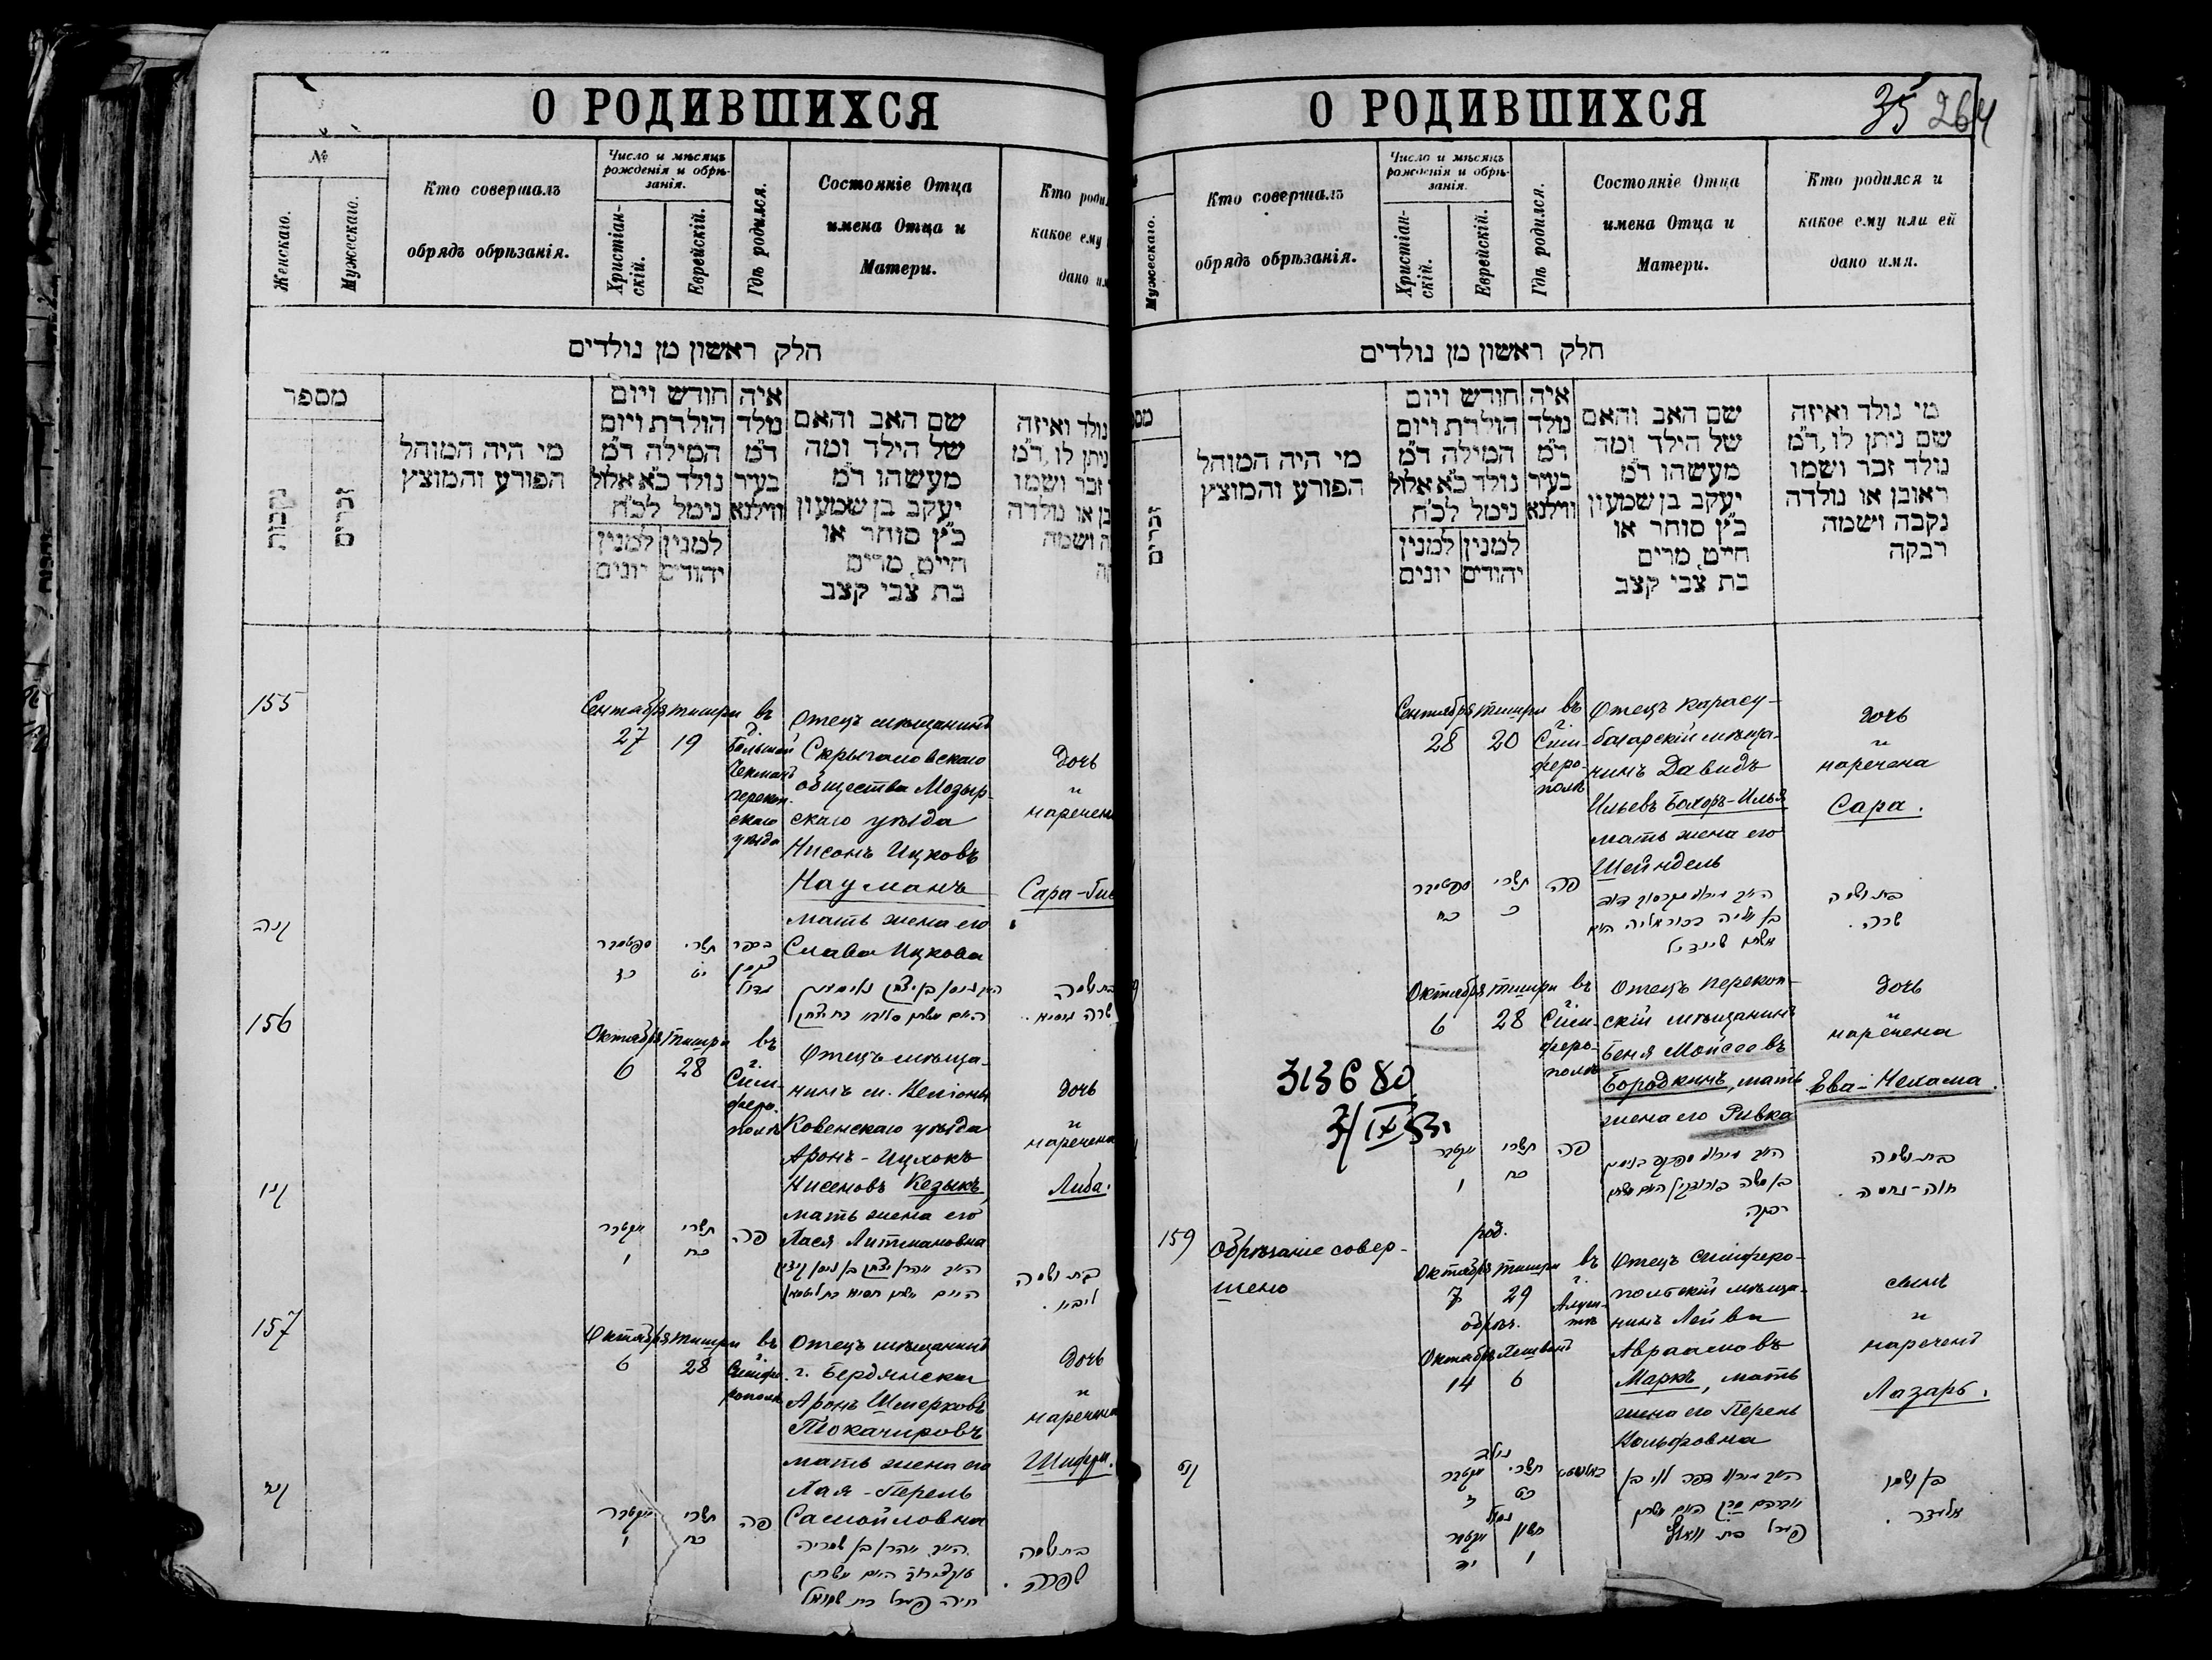 О РОДИВШИХСЯ
№
Женскаго.
Мужескаго.
Кто совершалъ
обрядъ обрѣзанія.
Число и мѣсяцъ
рожденія и обрѣ-
занія.
Христіан-
скій.
Еврейскій.
Гдѣ родился.
Состояніе Отца
имена Отца и
Матери.
Кто роди
какое ему
дано им
חלק ראשון מן נולדים
מספר
נקבות
זכרים
מי היה המוהל
הפורע והמוצץ
חודש ויום
הולדת ויום
המילה ד״מ
נולד כ״א אלול
נימל לכ״ח
למנין למנין
יהודים יונים
איה
נולד
ד״מ
בעיר
ווילנא
שם האב והאם
של הילד ומה
מעשהו ד״מ
יעקב בן שמעון
כ״ץ סוחר או
חייט, מרים
בת צבי קצב
נולד ואיזה
ניתן לו, ד״מ
זכר ושמו
בן או נולדה
ה ושמה
קה
155
Сентября тишри въ
27 19
Большой
Чекмакъ
перекоп-
скаго
уѣзда
Отецъ мѣщанинъ
Скрыгаловскаго
общества Мозыр-
скаго уѣзда
Нисонъ Ицковъ
Науманъ
мать жена его
Слава Ицкова
Дочь
и
наречена
Сара-
קנה
ספטמבר תשרי
כז יט
גדול
בת ושמה
שרה
156
Октября тишри въ
6 28
г.
Сим-
феро-
полѣ
Отецъ мѣща-
нинъ м.
Ковенскаго уѣзда
Аронъ-Ицхокъ
Нисоновъ Кезыкъ
мать жена его
Хася Литмановна
дочь
и
наречена
Либа.
קנו
תשרי
כח
ו
פה
בת ושמה
ליבא .
157
Октября тишри въ
6 28
г.
Симфе-
рополѣ
Отецъ мѣщанинъ
г. Бердянска
Аронъ Шмерковъ
Токачировъ
мать жена его
Хая-Перель
Самойловна
дочь
и
наречена
Шифра.
קנז
תשרי
כח
ו
פה
בת ושמה
שפרה .
חיה פערל בת שמואל
О РОДИВШИХСЯ
35 264
Мужескаго.
Кто совершалъ
обрядъ обрѣзанія.
Число и мѣсяцъ
рожденія и обрѣ-
занія.
Христіан-
скій.
Еврейскій.
Гдѣ родился.
Состояніе Отца
имена Отца и
Матери.
Кто родился и
какое ему или ей
дано имя.
חלק ראשון מן נולדים
מספ
זכרים
מי היה המוהל
הפורע והמוצץ
חודש ויום
הולדת ויום
המילה ד״מ
נולד כ״א אלול
נימל לכ״ח
למנין למנין
יהודים יונים
איה
נולד
ד״מ
בעיר
ווילנא
שם האב והאם
של הילד ומה
מעשהו ד״מ
יעקב בן שמעון
כ״ץ סוחר או
חייט, מרים
בת צבי קצב
מי נולד ואיזה
שם ניתן לו, ד״מ
נולד זכר ושמו
ראובן או נולדה
נקבה וישמה
רבקה
Сентября тишри въ
28 20
г.
Сим-
феро-
полѣ
Отецъ карасу-
базарскій мѣща-
нинъ Давидъ
Ильевъ Бохоръ-Илья
мать жена его
Шейндель
дочь
и
наречена
Сара.
ספטמבר תשרי
כח כ
פה
בת ושמה
שרה .
Октября тишри въ
6 28
г.
Сим-
феро-
полѣ
Отецъ перекоп-
скій мѣщанинъ
Беня Мойсеевъ
Бородкинъ, мать
жена его Ривка
дочь
и
наречена
Ева-Нехама.
313680
3/IX 53
תשרי
כח
ו
פה
רבקה
בת ושמה
חוה-נחמה .
159
Обрѣзаніе совер-
шено
род.
Октября тишри въ
7 29
г.
Алуш-
тѣ
обрѣз.
Октября Хешванъ
14 6
Отецъ симферо-
польскій мѣща-
нинъ Лейба
Авраамовъ
Маркъ, мать
жена его Перель
Вольфовна
сынъ
и
нареченъ
Лазарь.
קנט
נולד
תשרי
כט
ז
נימול
חשון
ו
יד
פערל בת וואלף
בן ושמו
אליעזר .